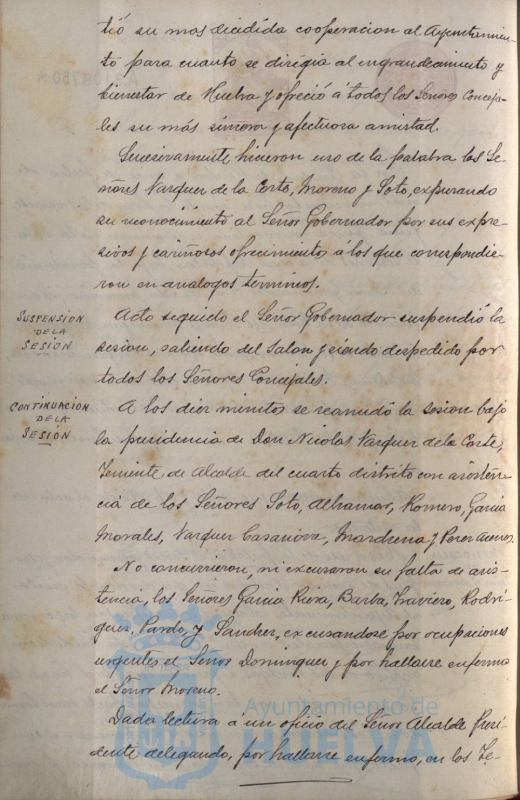 tió su mas decidida cooperacion al Ayuntamien-
tó para cuanto se dirigia al engrandecimiento y
bienestar de Huelva y ofreció á todos los Señores Conceja-
les su más sincera y afectuosa amistad.
Sucesivamente hicieron uso de la palabra los Se-
ñores Vazquez de la Corte, Moreno y Soto, expresando
su reconocimiento al Señor Gobernador por sus expre-
sivos y cariñosos ofrecimientos á los que correspondie-
ron en analogos terminos.
SUSPENSIÓN
DE LA
SESIÓN
Acto seguido el Señor Gobernador suspendió la
sesion, saliendo del Salon y siendo despedido por
todos los Señores Concejales.
CONTINUACION
DE LA
SESIÓN
A los diez minutos se reanudó la sesion bajo
la presidencia de Don Nicolas Vazquez de la Corte,
Teniente de Alcalde del cuarto distrito con asisten-
cia de los Señores Soto, Alhamar, Romero, Garcia
Morales, Vazquez Casanova, Mardrena y Perez
No concurrieron, ni excusaron su falta de asis-
tencia, los Señores Garcia Riera, Barba, Traviero, Rodri-
guez, Pardo, y Sandrez, excusandose por ocupaciones
urgentes el Señor Dominguez y por hallarse enfermo
el Señor Moreno.
Dada lectura á un oficio del Señor Alcalde Presi-
dente delegando, por hallarse enfermo, en los Te-
Ayuntamiento de
HUELVA